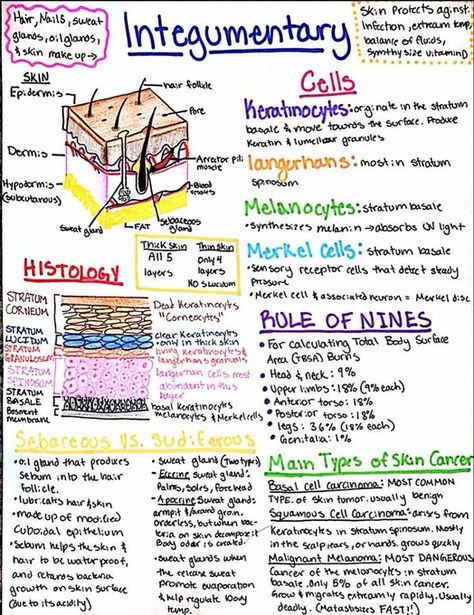 Hair, Nails, sweat
glands, oil glands,
& skin make up →
Integumentary
Skin Protects against
Infection, extream temp,
balance of fluids,
Synthysize vitamin D.
SKIN
Epidermis
hair follicle
Pore
Dermis
Arrector pili
muscle
Hypodermis
(subcutanous)
Blood
vessels
sweat gland
FAT
sebaceous
gland
Cells
Keratinocytes: originate in the stratum
basale & move towards the surface. Produce
Keratin & lumellar granules
Langerhans: most in stratum
spinosum
Melanocytes: stratum basale
• Synthesizes melanin → absorbs UV light
Merkel Cells: stratum basale
• Sensory receptor cells that detect steady
pressure
• Merkel cell & associated neuron = Merkel disc
Thick skin
All 5
layers
Thin skin
only 4
layers
NO Slucidum
HISTOLOGY
STRATUM
CORNEUM
Dead Keratinocytes
"Corneocytes"
STRATUM
LUCIDUM
clear Keratinocytes
-only in thick skin
STRATUM
GRANULOSUM
living keratinocytes &
langerhans granuls
STRATUM
SPINOSUM
langerhan cells most
abundant in this
layer
STRATUM
BASALE
Basment
membrane
basal keratinocytes
melanocytes & Merkel cells
RULE OF NINES
• For calculating Total Body Surface
Area (TBSA) Burn's
• Head & neck: 9%
• Upper limbs: 18% (9% each)
• Anterior torso: 18%
• Posterior torso: 18%
• legs: 36% (18% each)
• Genitalia: 10%
Sebaceous Vs. Sudiferous
• oil gland that produces
Sebum into the hair
follicle.
• lubricats hair & skin
• made up of modified
Cuboidal epithelium
• Sebum helps the skin &
hair to be water proof,
and retards bacteria
growth on skin surface
(due to its acidity)
• sweat gland (Two types)
- Eccrine sweat gland:
palms, soles, forehead
- Apocrine Sweat glands:
armpit & around groin.
orderless, but when bac-
teria on skin decompose it
Body odor is created.
• sweat glands when
the release sweat
promote evaporation
& help regulate body
temp.
Main Types of Skin Cancer
Basal cell carcinoma: MOST COMMON
TYPE of skin tumor. usually benign
Squamous Cell Carcinoma: arises from
Keratinocytes in stratum spinosum. Mostly
in the scalp, ears, or hands. grows quickly
Malignant Melanoma: MOST DANGEROUS
Cancer of the melanocytes in stratum
basale. Only 5% of all skin cancer.
Grow & migrates extreamly rapidly. Usually
deadly. (Matasisizes FAST!!)